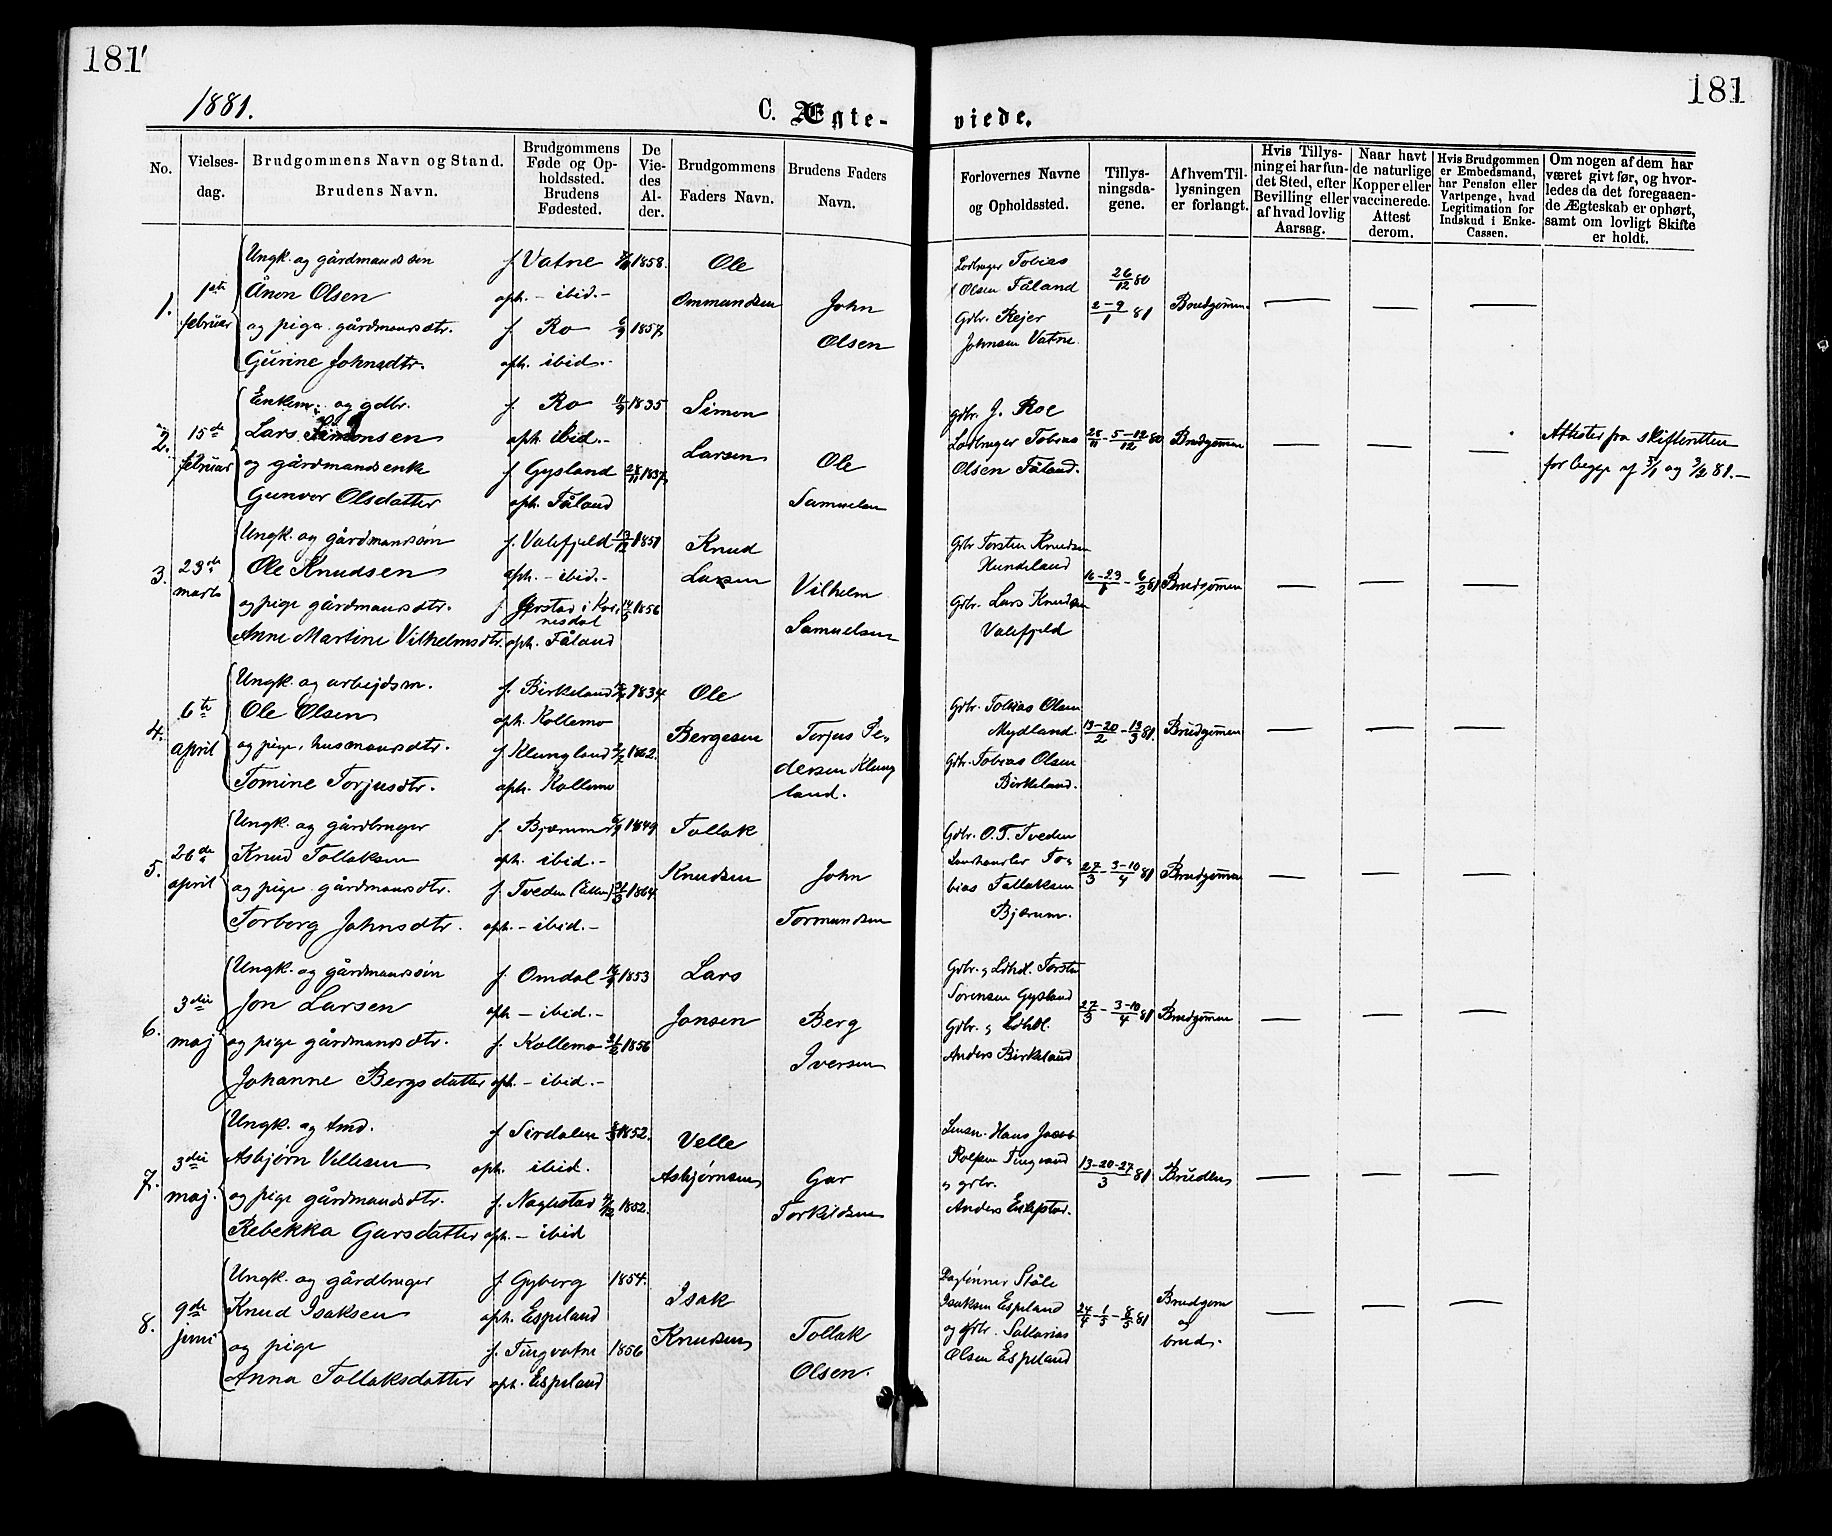 181
181
1881.
C. Ægte-
viede.
No.
Vielses-dag.
Brudgommens Navn og Stand.
Brudens Navn.
Brudgommens Føde og Op-holdssted. Brudens Fødested.
De Vie-des Al-der.
Brudgommens Faders Navn.
Brudens Faders Navn.
Forlovernes Navne og Opholdssted.
Tillys-ningsda-gene.
Af hvem Til-lysningen er forlangt.
Hvis Tillys-ning ei har fun-det Sted, efter Bevilling eller af hvad lovlig Aarsag.
Naar havt de naturlige Kopper eller vaccinerede. Attest derom.
Hvis Brudgommen er Embedsmand, har Pension eller Vartpenge, hvad Legitimation for Indskud i Enke-Cassen.
Om nogen af dem har været givt før, og hvor-ledes da det foregaaen-de Ægteskab er ophørt, samt om lovligt Skifte er holdt.
1. 1ste februar
Ungk. og gårdmandssøn f. Vatne 1858. Ole
Ånon Olsen oph. - ibid. - Ommundsen John
og pige gårdmansdtr. f. Ro 6/9 1857. Olsen
Gurine Johnsdtr. oph. ibid. -
Tobias
Olsen Fåland
Gdbr. Rejer
Johnsen Vatne.
26/12 80
2-9/1 81
Brudgommen
2. 15de februar
Enkem. og gdbr. f. Ro 1835 Simon
Lars Simonsen oph. ibid. -
og gårdmandsenk f. Gysland 1837. Larsen Ole
Gunvor Olsdatter oph. Fåland Samuelsen
gdbr. J. Roe
Tobias
Olsen Fåland.
28/11 - 5-12/12 80
Brudgommen
Attester fra skifteretten
for begge af 5/1 og 3/2 81. -
3. 23de marts
Ungk. og gårdmanssøn f. Valefjeld 1851 Knud
Ole Knudsen oph. - ibid. - Larsen Vilhelm
og pige gårdmansdtr. f. Gjerstad i Kvinesdal 1856
Anne Martine Vilhelmsdtr. oph. Fåland Samuelsen
Gdbr Torsten Knudsen
Hundeland
Gdbr. Lars Knudsen
Valefjeld
16-23/1 - 6/2 81
Brudgommen
4. 6te april
Ungk. og arbejdsm. f. Birkeland 1834 Ole
Ole Olsen oph. Kollemo
og pige, husmansdtr. f. Klungland 1862. Bergesen Torjus Pe-
Tomine Torjusdtr. oph. Kollemo dersen Klung
land.
Gdbr. Tobias Olsen
Mydland.
Gdbr. Tobias Olsen
Birkeland.
13-20/2 - 13/3 81.
Brudgommen
5. 26de april
Ungk. og gårdbruger f. Bjærum 1849 Tollak
Knud Tollaksen oph. ibid. -
og pige gårdmansdtr. f. Tveden 1864. Knudsen John
Torborg Johnsdtr. oph. - ibid. - Tormundsen
Gdbr. O. T. Tveden
Landhandler To-
bias Tollaksen
Bjærum.
27/3 - 3-10/4 81
Brudgommen
6. 3die maj
Ungk. og gårdmanssøn f. Omdal 1853 Lars
Jon Larsen oph. - ibid. -
og pige gårdmandsdtr. f. Kollemo 1856 Jonsen Berg
Johanne Bergsdatter oph. - ibid. - Iversen
Gdbr. og Ldhdl. Torsten
Sørensen Gysland
Gdbr. og Ldhdl.
Anders Birkeland
27/3 - 3-10/4 81
Brudgommen
7. 3die maj.
Ungk. og tmd. f. Sirdalen 1852. Velle
Asbjørn Vellesen oph. ibid. Asbjørnsen Gar
og pige gårdmandsdtr. f. Naglestad 1852. Torkildsen
Rebekka Garsdatter oph. - ibid
Lensm. Hans Jacob
Rolfsen Tingvand
og grbr.
Anders
13-20-27/3 81.
Bruden
8. 9de juni
Ungk. og gårdbruger f. Gyberg 1854. Isak
Knud Isaksen oph. Espeland
og pige f. Tingvatne 1856 Knudsen Tollak
Anna Tollaksdatter oph. Espeland Olsen.
Dagtønner Ståle
Isaksen Espeland
og gdbr. Sallarias
Olsen Espeland
24/4 - 1/5 - 8/5 81
Brudgom
og
brud.